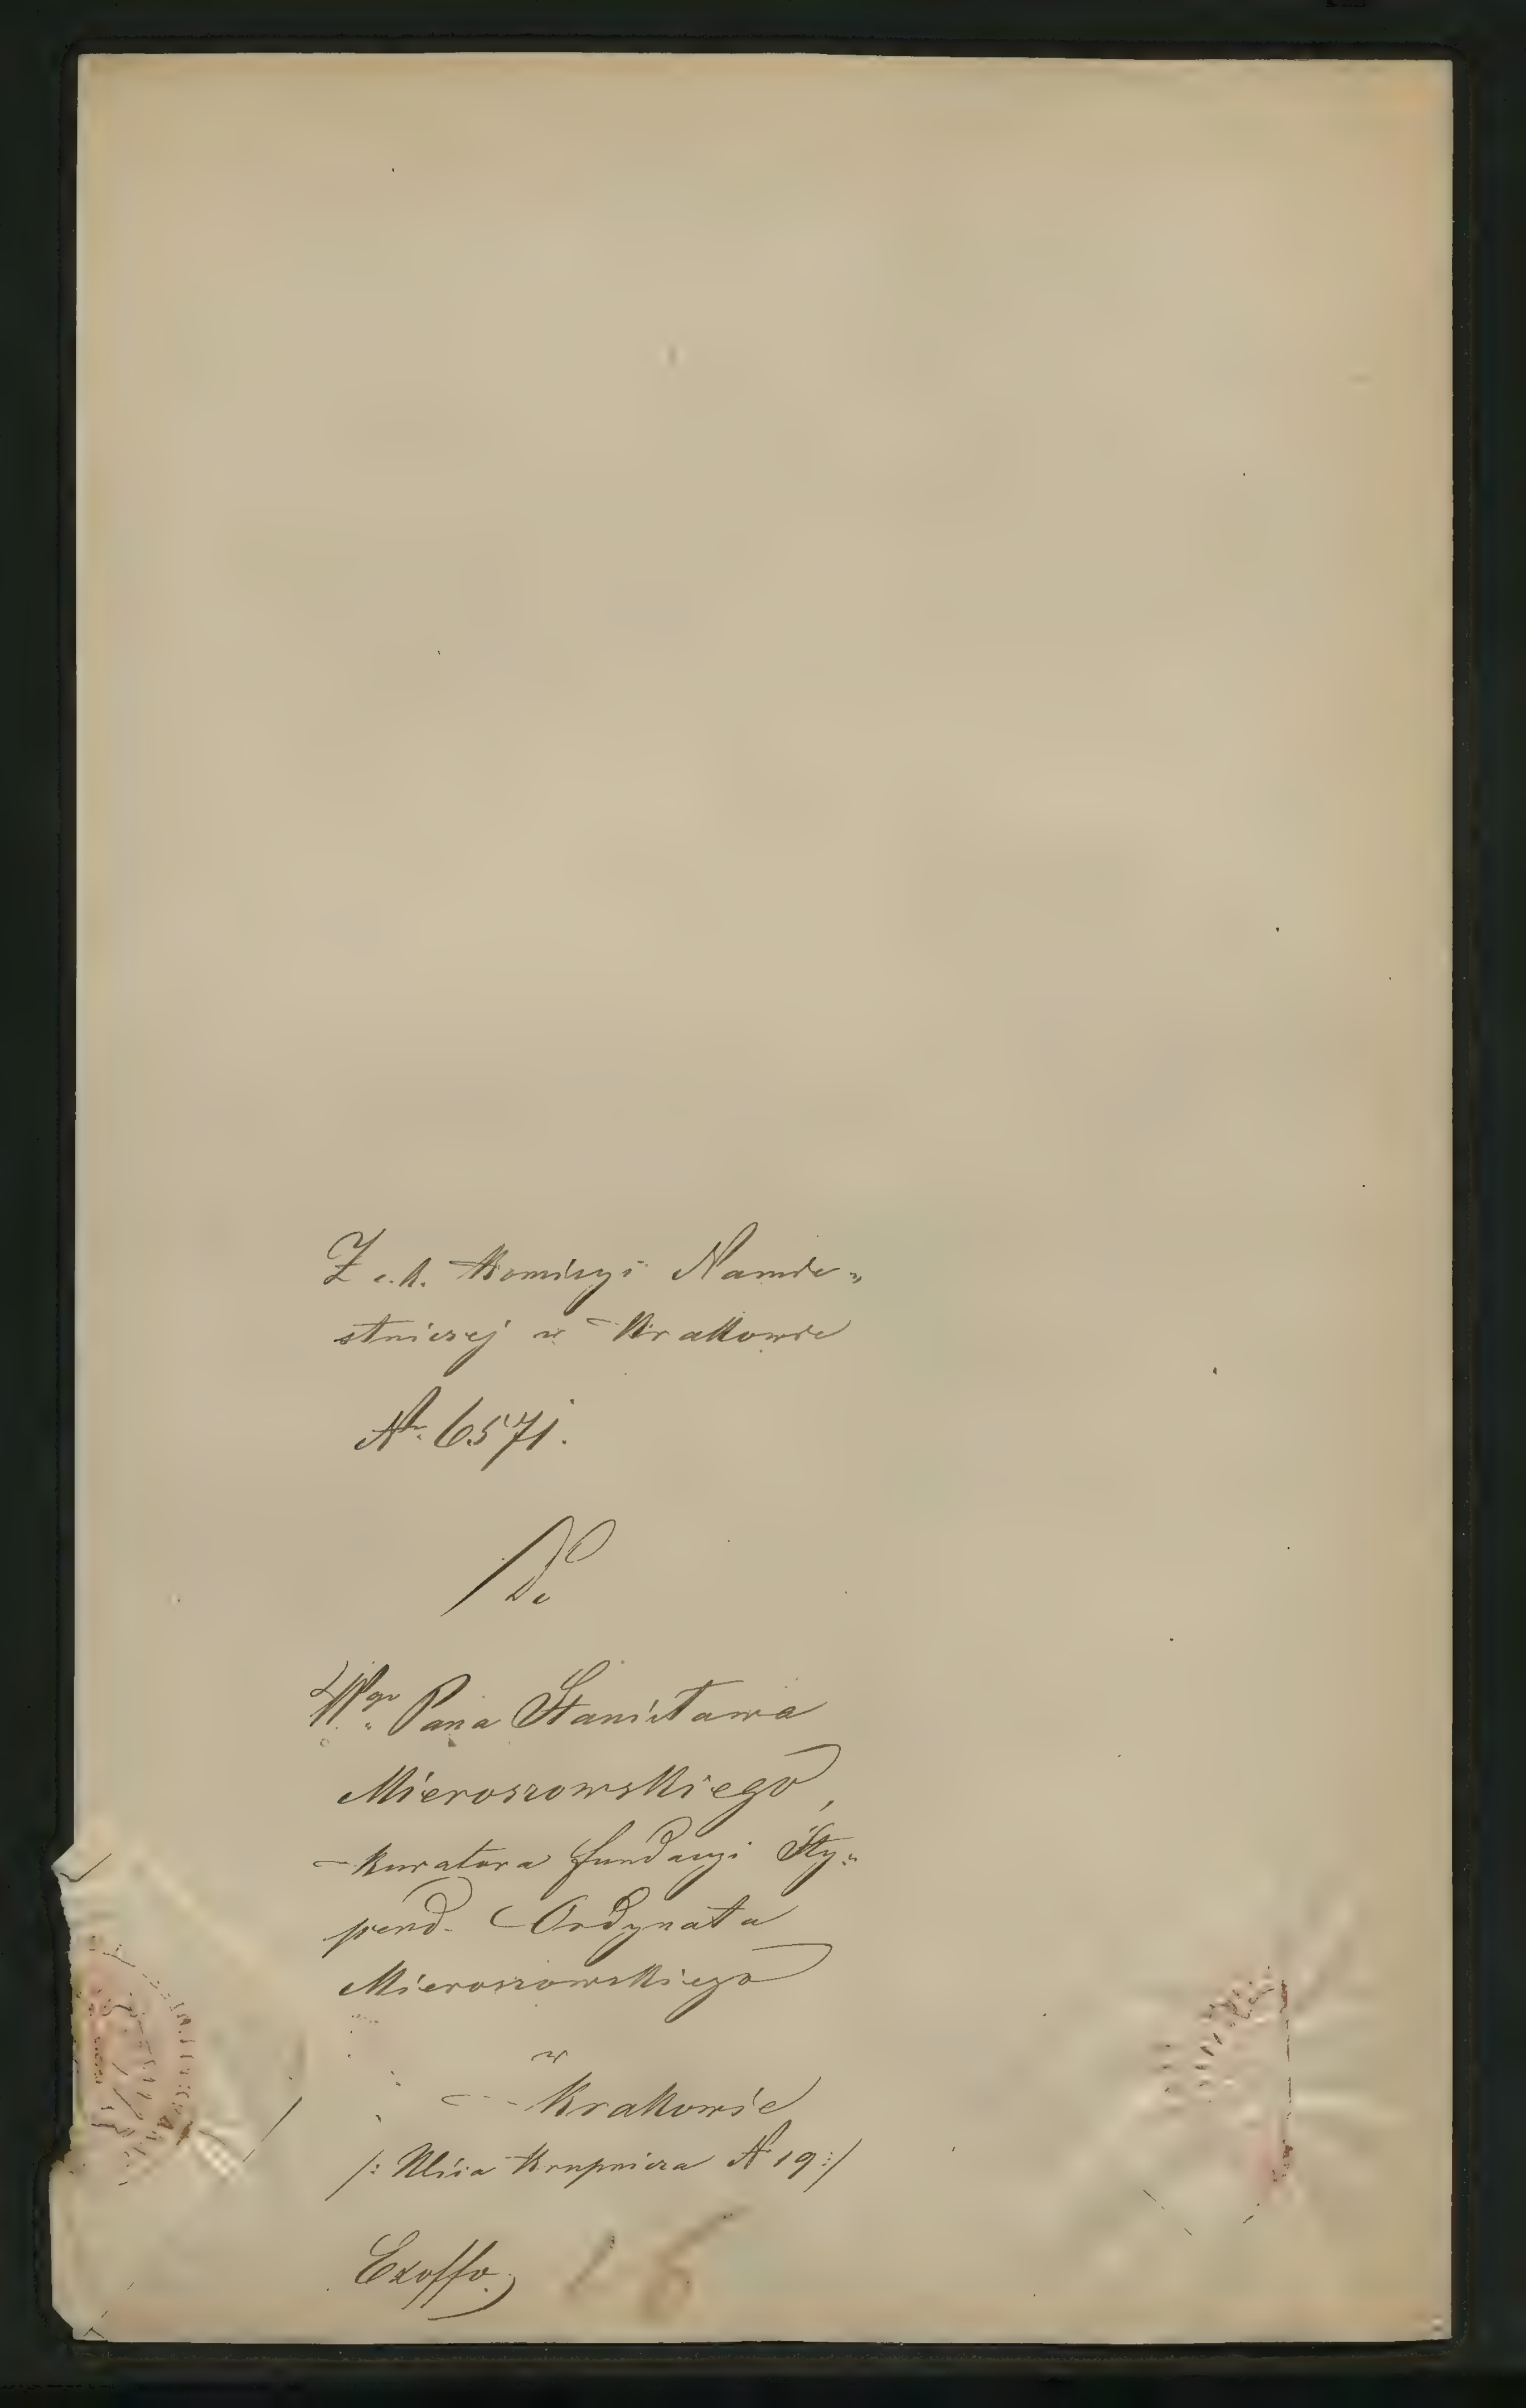 Z c. k. Komisyi Namie„
stniczej w Krakowie
Nr. 6571.
Do
Wgo Pana Stanisława
Mieroszowskiego,
Kuratora fundacyi Sty„
pend. Ordynata
Mieroszowskiego
w
Krakowie
/: Ulica Krupnicza N 19 :/
Exoffo.
16